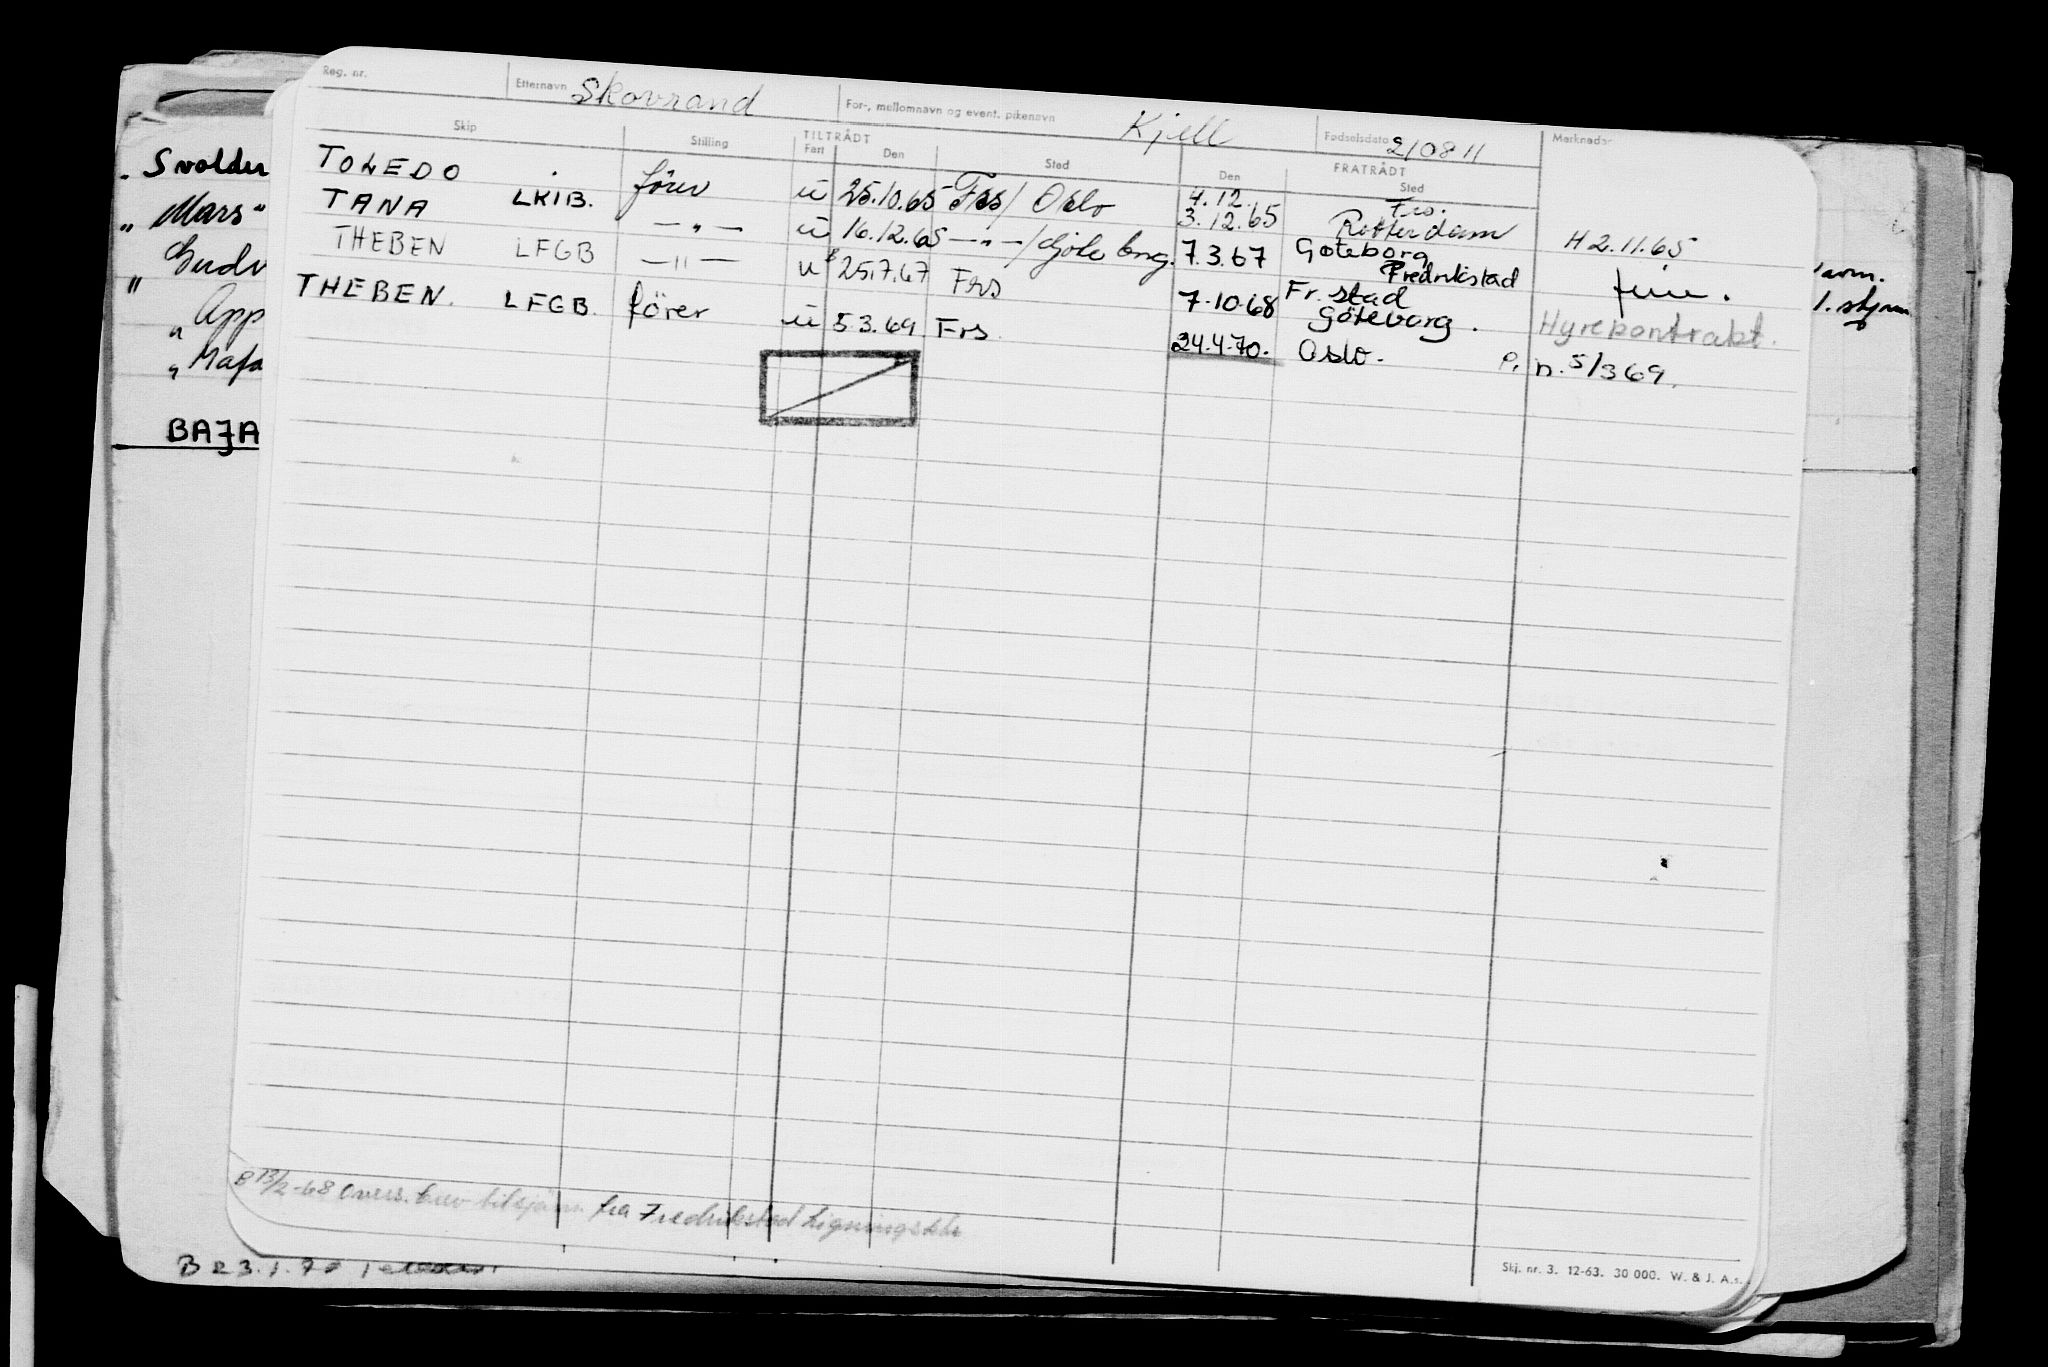 Reg. nr. Etternavn Skovrand For-, mellomnavn og event. pikenavn Kjell Fødselsdato 210811 Merknader
Skip Stilling TILTRÅDT FRATRÅDT
Fart Den Sted Den Sted
TOLEDO fører u 25.10.65 Frs/ Oslo 4.12. Frs.
TANA LKIB. — " — u 16.12.65 — " — / 3.12.65 Rotterdam H 2.11.65
THEBEN LFGB — " — u 25.7.67 Frs 7.3.67 Gøteborg
Fredrikstad
THEBEN. LFGB. fører u 5.3.69 Frs. 7.10.68 Fr.stad
Göteborg. Hyrekontrakt.
24.4.70. Oslo. P.n. 5/3 69.
" Svolder
" Mars"
"
" App
"
BAJA
1. styrm
B 13/2-68 fra Fredrikstad
B 23.1.70
Skj. nr. 3. 12-63. 30 000. W. & J. A.s.